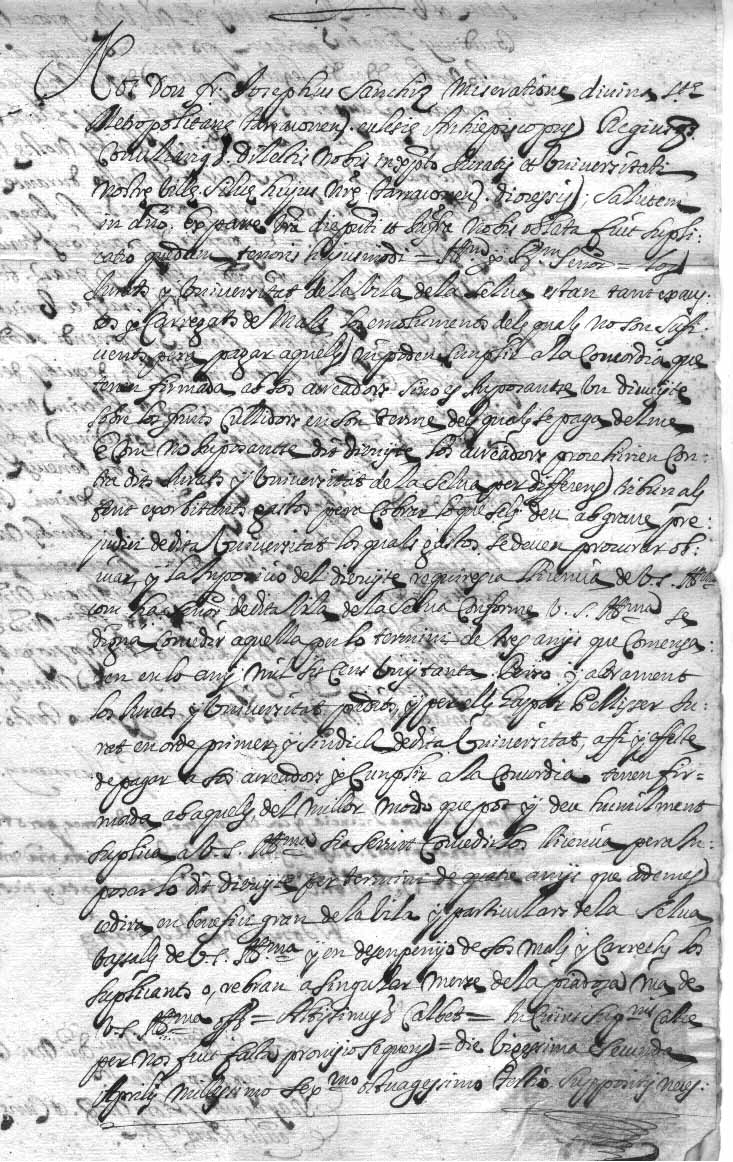 Nos Don fr. Josephus Sanchiz Miseratione divina Stæ
Metropolitanę tarraconen. ecclesię Archiepiscopus Regiusq3
Consiliariq3. dilectis nobis in xpto Juratis et Universitati
nostrę villę Silvę hujus nrę tarraconen. diocessis; Salutem
in dno. ex parte vra die pnti et nobis oblata fuit suppli:
catio quędam tenoris hujusmodi = Illm. y Rm. Señor = los
Jurats y Universitat de la Vila de la Selva estan tant exaus-
tos y Carregats de Mals, los emoluments dels quals no son sufi-
cients pera pagar aquells, ni poden cumplir a la Concordia que
tenen firmada ab sos acreadors sino es imposantse un divuyte
sobre los fruits Cullidors en son terme dels quals se paga delme
E Com no imposantse dit divuyte los acreadors procehirien con-
tra dits Jurats y Universitat de la Selva per differens tribunals
fent exorbitants gastos pera Cobrar lo que sels deu ab grave pre-
judici de dita Universitat los quals gastos se deuen procurar ob-
viar, y la imposicio del divuyte requiresca llicencia de V. S. Illma
com ha señor de dita Vila de la Selva Conforme V. S. Illma se
digna concedir aquella per lo termini de tres anys que comensa-
ren en lo any mil sis cens vuytanta. Perço y altrament
los Jurats y Universitat predits, y per ells Gaspar Pellizer Ju-
rat en orde primer, y sindich de dita Universitat, affi y effecte
de pagar a sos acreadors y Cumplir a la Concordia tenen fir-
mada ab aquells del millor modo que pot y deu humilment
suplica a V. S. Illma sia servit Concedirlos llicencia pera im-
posar lo dit divuyte per termini de quatre anys que ademes
cedira en benefici gran de la Vila y particulars de la Selva
vassalls de V. S. Illma y en desempenyo de sos Mals y Carrechs los
suplicants o rebran a singular merce de la piadosa ma de
V. S. Illma off3 = Altissimus3 Calbet = In Cuius supnis Calce
per nos fuit facta provisio sequens = die vigessima secunda
Aprilis millessimo sexmo octuagesimo tertio